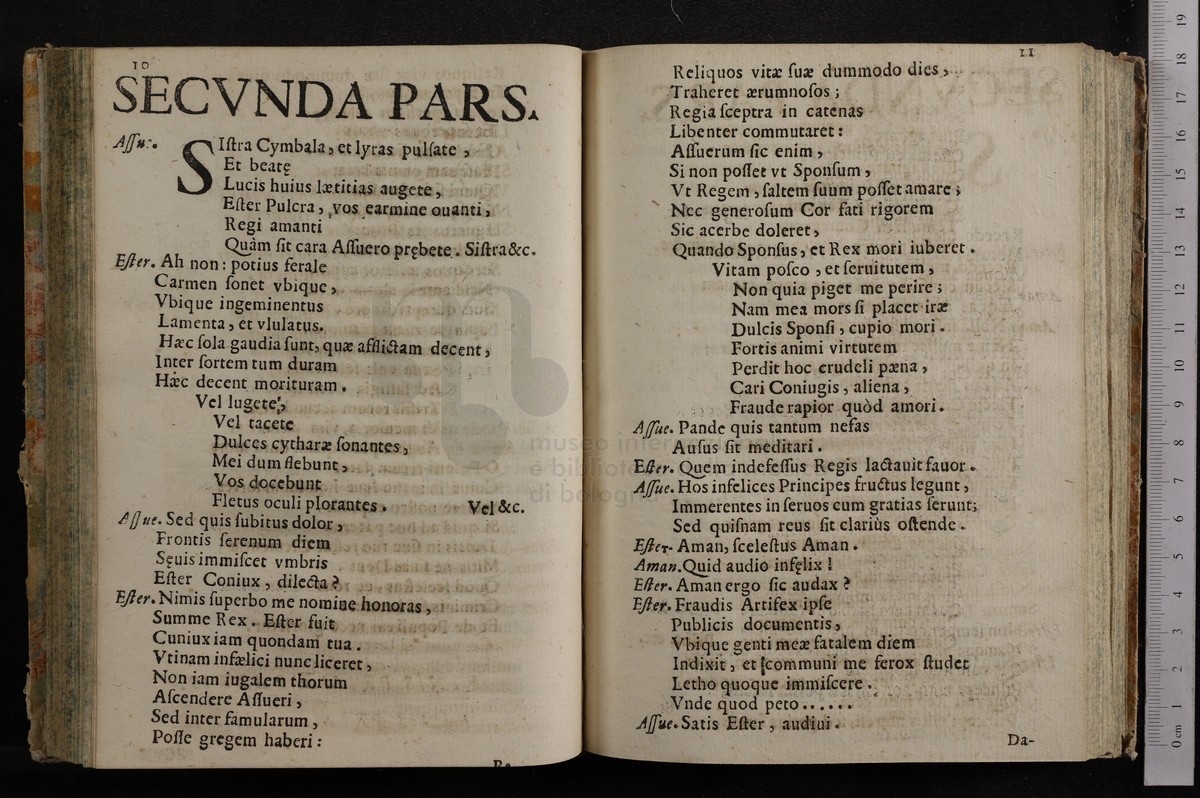 10
SECVNDA PARS.
Aſſu. SIſtra Cymbala, et lyras pulſate,
Et beatę
Lucis huius lætitias augete,
Eſter Pulcra, vos earmine ouanti,
Regi amanti
Quàm ſit cara Aſſuero prębete. Siſtra &c.
Eſter. Ah non: potius ferale
Carmen ſonet vbique,
Vbique ingeminentus
Lamenta, et vlulatus.
Hæc ſola gaudia ſunt, quæ afflictam decent,
Inter ſortem tum duram
Hæc decent morituram.
Vel lugete,
Vel tacete
Dulces cytharæ ſonantes,
Mei dum flebunt,
Vos docebunt
Fletus oculi plorantes. Vel &c.
Aſſue. Sed quis ſubitus dolor,
Frontis ſerenum diem
Sęuis immiſcet vmbris
Eſter Coniux, dilecta?
Eſter. Nimis ſuperbo me nomine honoras,
Summe Rex. Eſter fuit
Cuniux iam quondam tua.
Vtinam infælici nunc liceret,
Non iam iugalem thorum
Aſcendere Aſſueri,
Sed inter famularum,
Poſſe gregem haberi:
11
Reliquos vitæ ſuæ dummodo dies,
Traheret ærumnoſos;
Regia ſceptra in catenas
Libenter commutaret:
Aſſuerum ſic enim,
Si non poſſet vt Sponſum,
Vt Regem, ſaltem ſuum poſſet amare;
Nec generoſum Cor fati rigorem
Sic acerbe doleret,
Quando Sponſus, et Rex mori iuberet.
Vitam poſco, et ſeruitutem,
Non quia piget me perire;
Nam mea mors ſi placet iræ
Dulcis Sponſi, cupio mori.
Fortis animi virtutem
Perdit hoc crudeli pæna,
Cari Coniugis, aliena,
Fraude rapior quòd amori.
Aſſue. Pande quis tantum nefas
Auſus ſit meditari.
Eſter. Quem indefeſſus Regis lactauit fauor.
Aſſue. Hos infelices Principes fructus legunt,
Immerentes in ſeruos cum gratias ferunt;
Sed quiſnam reus ſit clariùs oſtende.
Eſter. Aman, ſceleſtus Aman.
Aman. Quid audio infęlix!
Eſter. Aman ergo ſic audax?
Eſter. Fraudis Artifex ipſe
Publicis documentis,
Vbique genti meæ fatalem diem
Indixit, et communi me ferox ſtudet
Letho quoque immiſcere.
Vnde quod peto......
Aſſue. Satis Eſter, audiui.
Da-